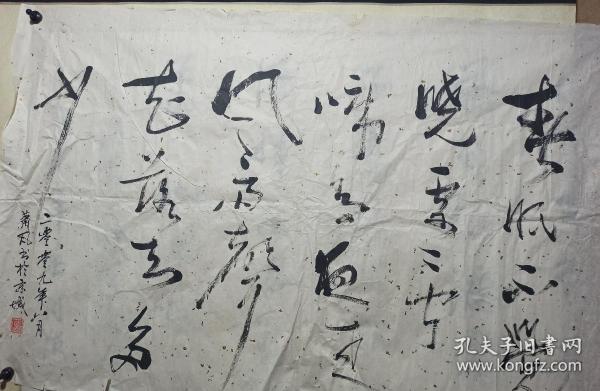 春眠不觉
晓处处闻
啼鸟夜来
风雨声
花落知多
少
二零零九年六月
书於京城
孔夫子旧书网